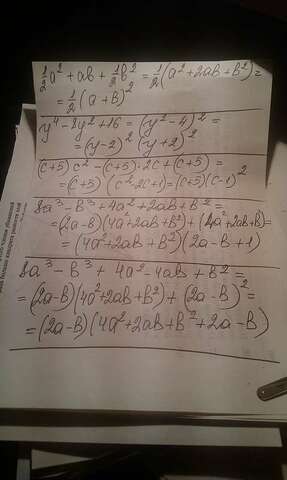 1/2 a² + ab + 1/2 b² = 1/2 (a² + 2ab + b²) =
= 1/2 (a + b)²
y⁴ - 8y² + 16 = (y² - 4)² =
= (y - 2)² (y + 2)²
(c+5) c² - (c+5)·2c + (c+5) =
= (c+5) (c² - 2c+1) = (c+5)(c-1)²
8a³ - b³ + 4a² + 2ab + b² =
= (2a - b)(4a² + 2ab + b²) + (4a² + 2ab + b) =
= (4a² + 2ab + b²)(2a - b + 1)
8a³ - b³ + 4a² - 4ab + b² =
= (2a - b)(4a² + 2ab + b²) + (2a - b)² =
= (2a - b)(4a² + 2ab + b² + 2a - b)